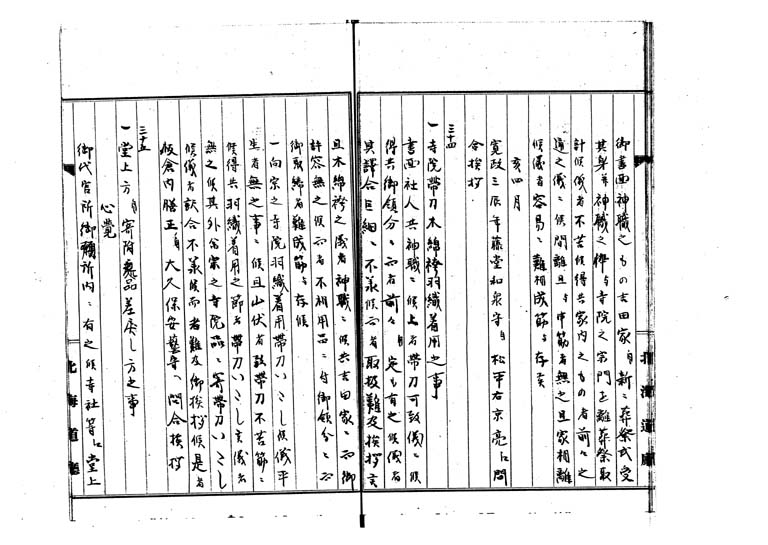 御書面神職之もの吉田家ゟ新ニ葬祭式受
其身并神職之悴ゟ寺院之宗門を離葬祭取
計候儀者不苦候得共家内之もの者前々之
通之儀ニ候間離旦与申筋者無之且家相離
候儀者容易ニ難相成筋与存候
亥四月
寛政三辰年藤堂和泉守ゟ松平右京亮江問
合挨拶
三十四
一寺院帯刀木綿袴羽織着用之事
書面社人共神職ニ候上者帯刀可致儀ニ候
得共御領分ニ而者前々ゟ定も有之候儀者
其譯合巨細ニ不承候而者取極難及挨拶
且木綿袴之儀者神職ニ候共吉田家ニ而御
許容無之候而者不相用品ニ付御領分ニ而
御取締者難成筋ニ存候
一向宗之寺院羽織着用帯刀いたし候儀平
生者無之事ニ候且山伏者致帯刀不苦筋ニ
候得共羽織着用之節者帯刀いたし候儀者
無之候其外余宗之寺院品ニ寄帯刀いたし
候儀者訳合不承候而者難及御挨拶候是者
板倉内膳正ゟ大久保安藝守へ問合挨拶
三十五
一堂上方ゟ寄附品差戻し方之事
心覚
御代官所御領所内ニ有之候寺社等江堂上
北海道廳